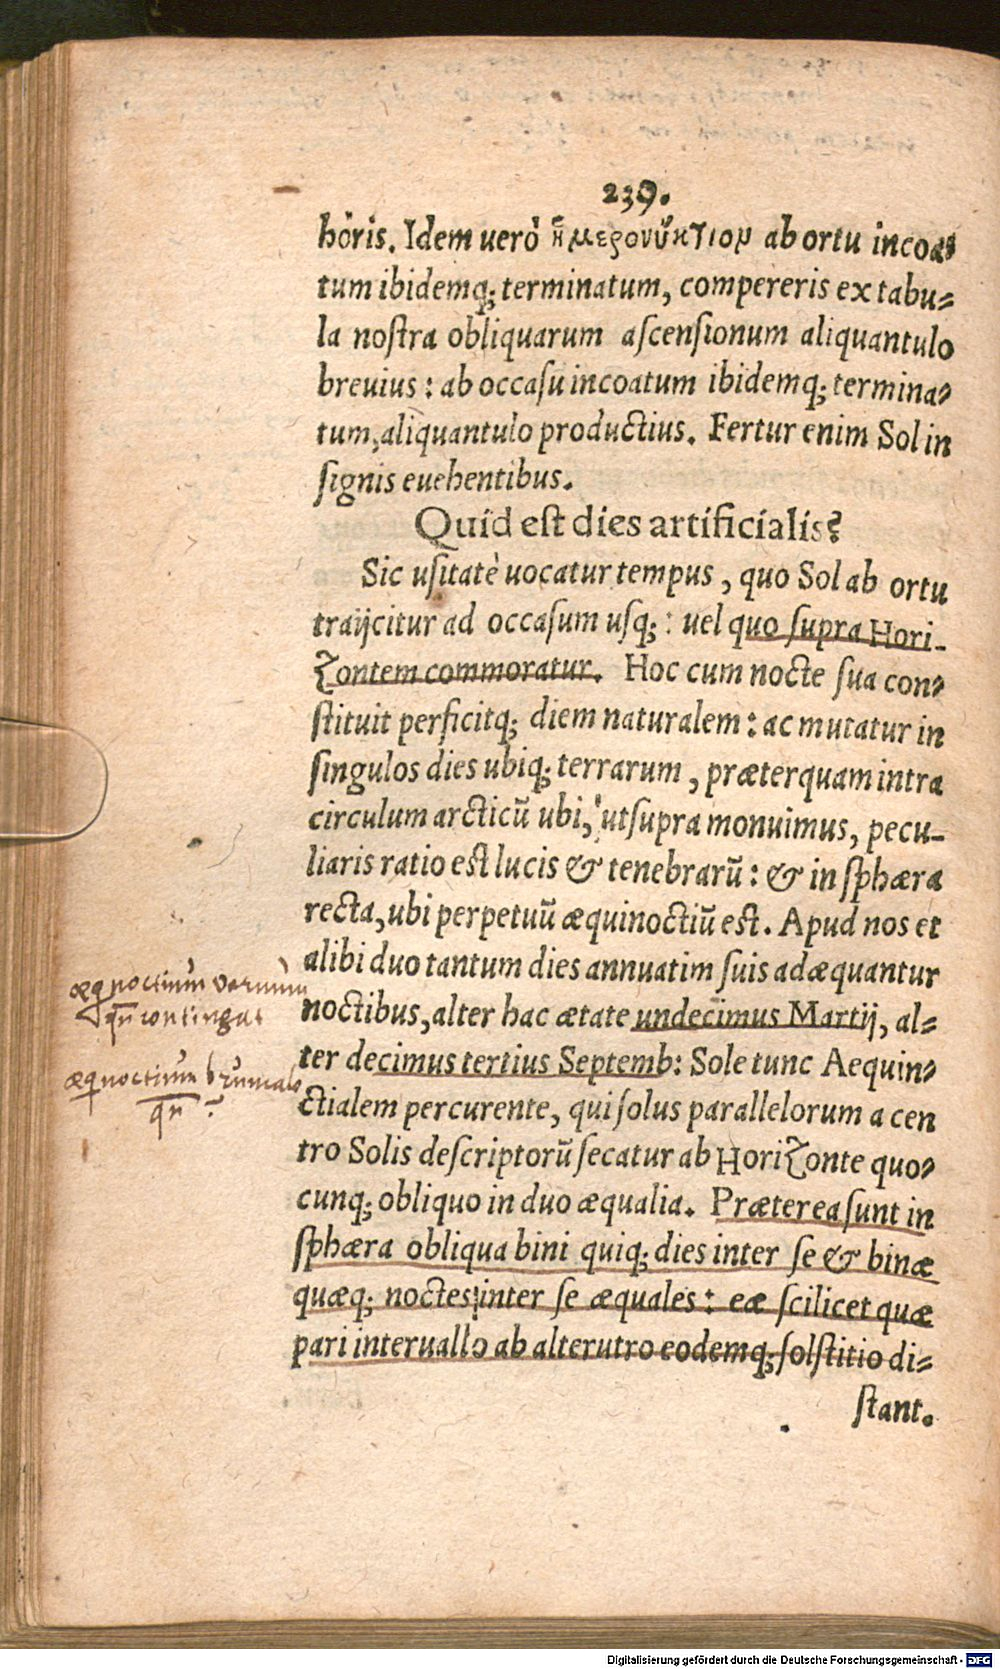 239.
horis. Idem uerò ἡμερονύκτιον ab ortu incoa-
tum ibidemq; terminatum, compereris ex tabu-
la nostra obliquarum ascensionum aliquantulo
breuius: ab occasu incoatum ibidemq; termina-
tum, aliquantulo productius. Fertur enim Sol in
signis euehentibus.
Quid est dies artificialis?
Sic usitatè uocatur tempus, quo Sol ab ortu
traijcitur ad occasum usq;: uel quo supra Hori-
zontem commoratur. Hoc cum nocte sua con-
stituit perficitq; diem naturalem: ac mutatur in
singulos dies ubiq; terrarum, præterquam intra
circulum arcticũ ubi, ut supra monuimus, pecu-
liaris ratio est lucis & tenebrarũ: & in sphæra
recta, ubi perpetuũ æquinoctiũ est. Apud nos et
alibi duo tantum dies annuatim suis adæquantur
noctibus, alter hac ætate undecimus Martij, al-
ter decimus tertius Septemb: Sole tunc Aequin-
ctialem percurente, qui solus parallelorum a cen
tro Solis descriptorũ secatur ab Horizonte quo-
cunq; obliquo in duo æqualia. Præterea sunt in
sphæra obliqua bini quiq; dies inter se & binæ
quæq; noctes inter se æquales: eæ scilicet quæ
pari interuallo ab alterutro eodemq; solstitio di-
stant.
æqnoctium vernum
qñ contingat
æqnoctium brumale
qñ?
Digitalisierung gefördert durch die Deutsche Forschungsgemeinschaft - DFG